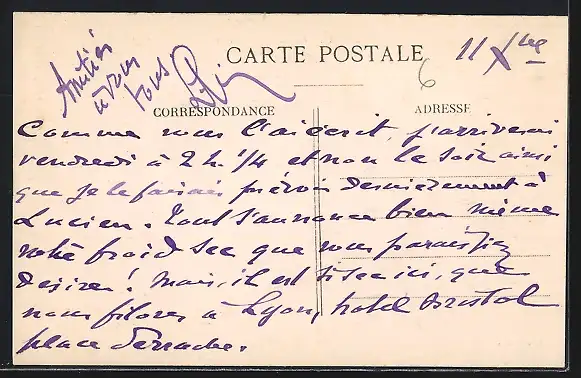 Amitiés
à vous
tous
CARTE POSTALE
11 Xbre
6
CORRESPONDANCE
ADRESSE
Comme vous l'ai écrit, j'arriverai
vendredi à 2 h. 1/4 et non le soir ainsi
que je le faisais prévoir dernièrement à
Lucien. Tout s'annonce bien même
votre froid sec que vous paraissiez
désirer! Mais, il est si sec ici, que
nous filons à Lyon, hotel Bristol
place Perrache.